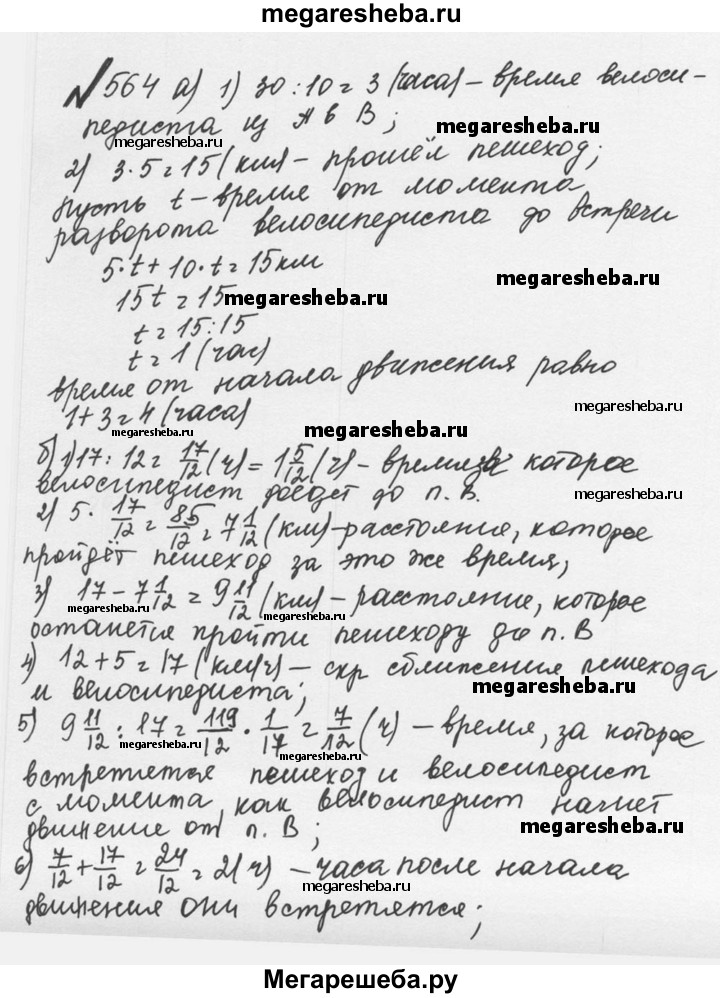 megaresheba.ru
№564 а) 1) 30 : 10 = 3 (часа) – время велоси-
педиста из А в В;
megaresheba.ru megaresheba.ru
2) 3·5=15 (км) – прошёл пешеход;
пусть t – время от момента
разворота велосипедиста до встречи
5·t+10·t=15км
megaresheba.ru
15t=15
megaresheba.ru
t=15:15
t=1 (час)
время от начала движения равно
megaresheba.ru
1+3=4 (часа)
megaresheba.ru megaresheba.ru
б) 1) 17 : 12 = 17/12 (ч) = 1 5/12 (ч) – время за которое
велосипедист доедет до п. В.
2) 5 · 17/12 = 85/12 = 7 1/12 (км) – расстояние, которое
пройдёт пешеход за это же время,
3) 17 – 7 1/12 = 9 11/12 (км) – расстояние, которое
megaresheba.ru
останется пройти пешеходу до п. В
4) 12+5=17 (км/ч) – скр сближения пешехода
и велосипедиста;
megaresheba.ru
5) 9 11/12 : 17 = 119/12 · 1/17 = 7/12 (ч) – время, за которое
megaresheba.ru
встретятся пешеход и велосипедист
с момента, как велосипедист начнет
движение от п. В;
megaresheba.ru
6) 7/12 + 17/12 = 24/12 = 2 (ч) – часа после начала
megaresheba.ru
движения они встретятся;
Мегарешеба.ру